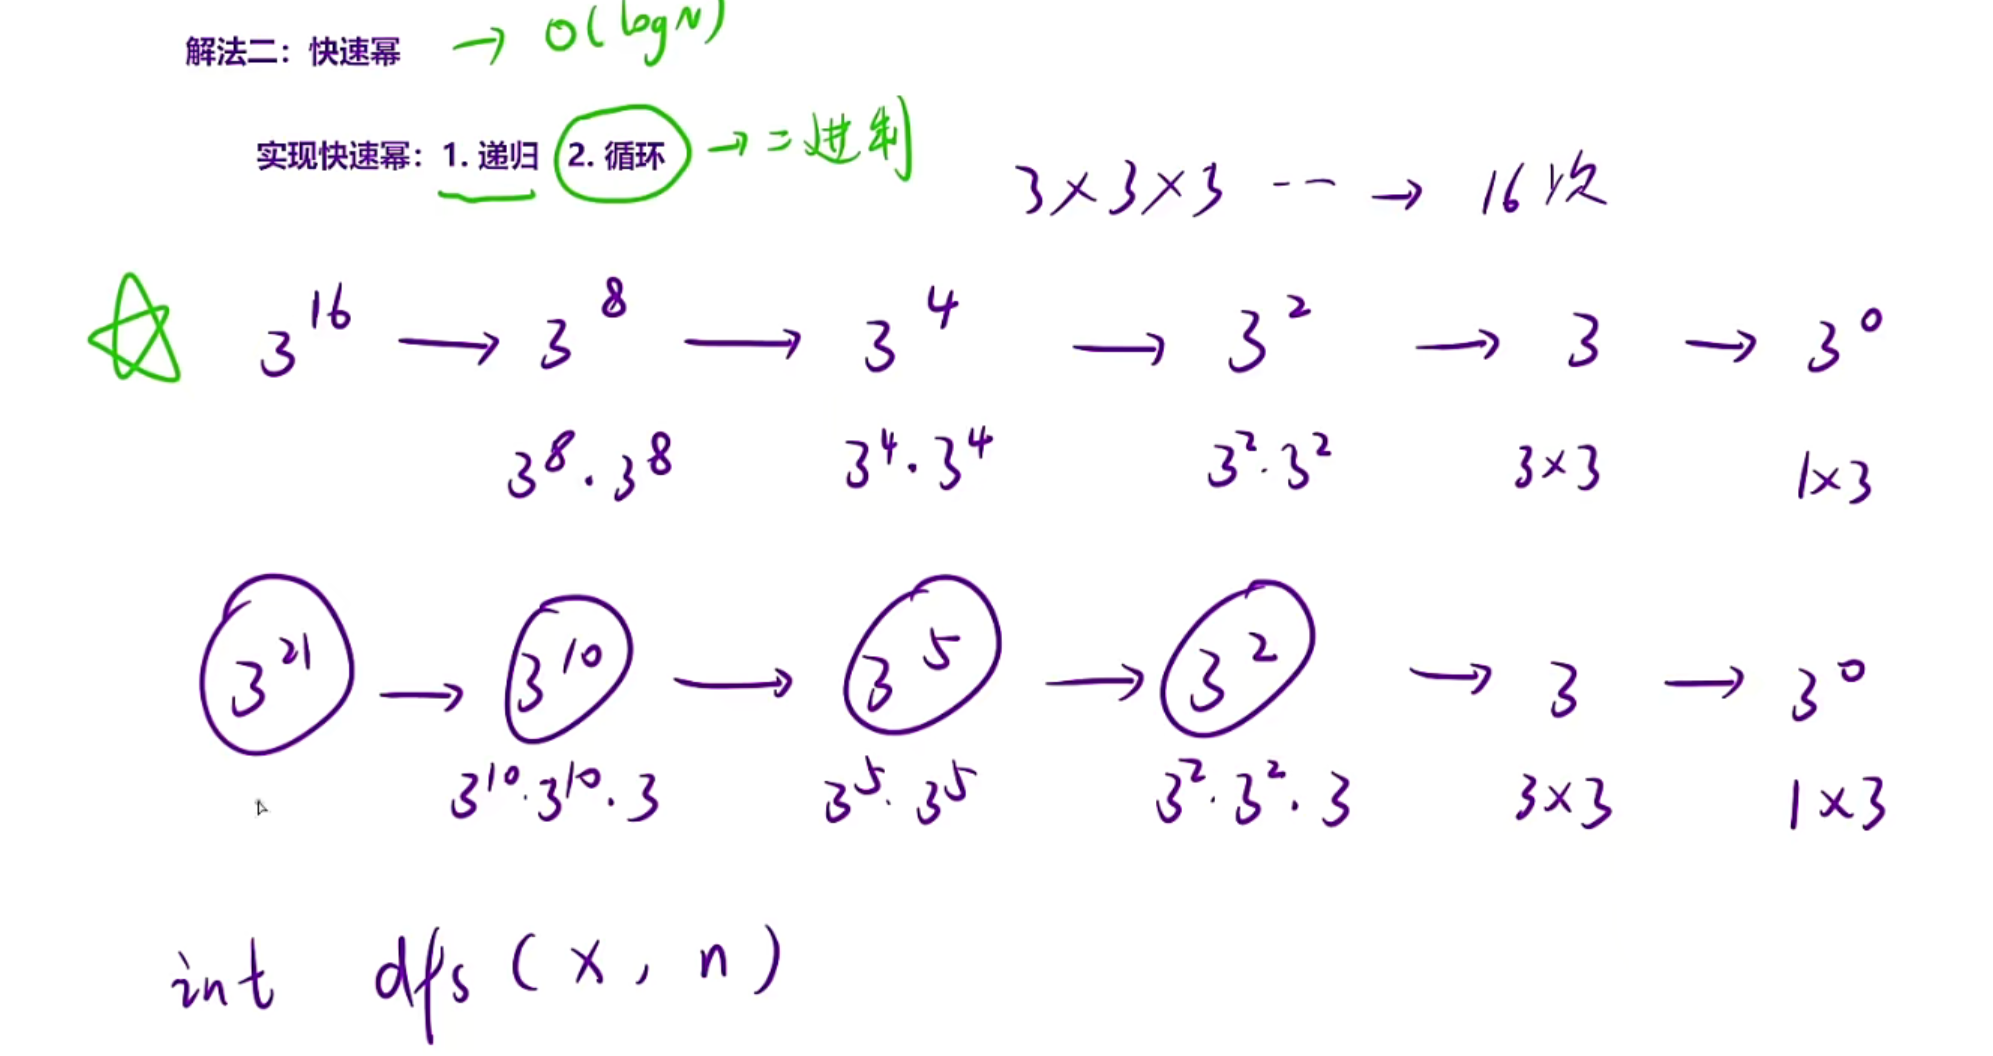 解法二：快速幂 → O(logN)
实现快速幂：1. 递归 2. 循环 → 二进制
3×3×3 -- → 16次
3^16 → 3^8 → 3^4 → 3^2 → 3 → 3^0
3^8·3^8 3^4·3^4 3^2·3^2 3×3 1×3
3^21 → 3^10 → 3^5 → 3^2 → 3 → 3^0
3^10·3^10·3 3^5·3^5 3^2·3^2·3 3×3 1×3
int dfs(x, n)